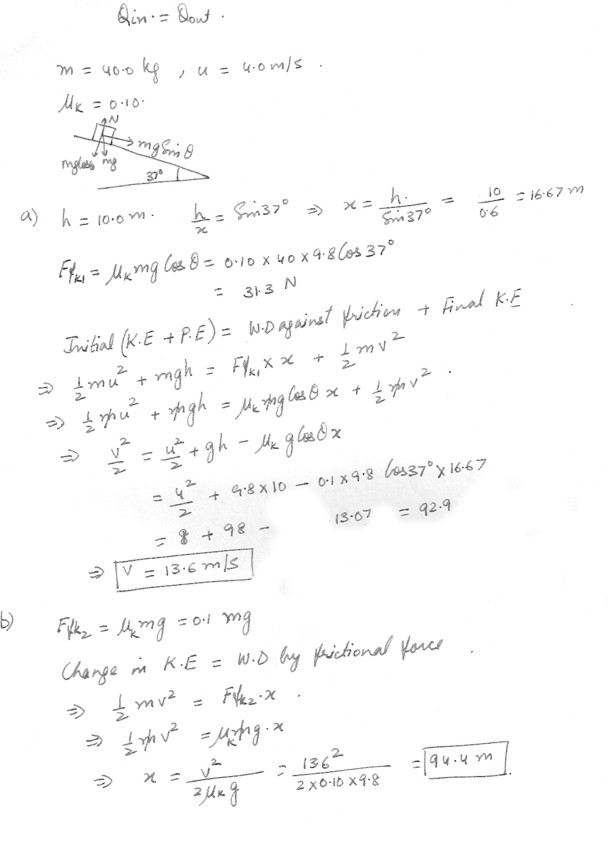 Qin. = Qout.
m = 40.0 kg , u = 4.0 m/s .
μk = 0.10.
N
mg Sin θ
mg Cos θ mg
37°
a) h = 10.0 m. h/x = Sin 37° ⇒ x = h./Sin 37° = 10/0.6 = 16.67 m
Ffk1 = μk mg Cos θ = 0.10 x 40 x 9.8 Cos 37°
= 31.3 N
Initial (K.E + P.E) = W.D against friction + Final K.E
⇒ 1/2 mu² + mgh = Ffk1 x x + 1/2 mv²
⇒ 1/2 mu² + mgh = μk mg Cos θ x + 1/2 mv² .
⇒ v²/2 = u²/2 + gh - μk g Cos θ x
= 4²/2 + 9.8 x 10 - 0.1 x 9.8 Cos 37° x 16.67
= 8 + 98 - 13.07 = 92.9
⇒ V = 13.6 m/s
b) Ffk2 = μk mg = 0.1 mg
Change in K.E = W.D by frictional force .
⇒ 1/2 mv² = Ffk2 . x .
⇒ 1/2 mv² = μk mg . x
⇒ x = v²/2μk g = 136²/2 x 0.10 x 9.8 = 94.4 m